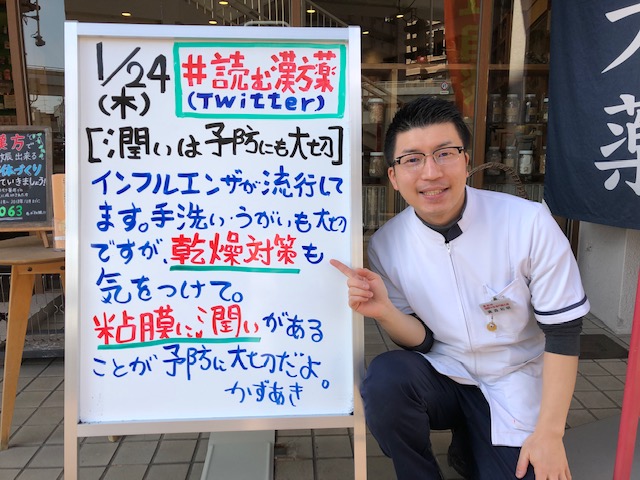 1/24
(木)
#読む漢方薬
(Twitter)
[潤いは予防にも大切]
インフルエンザが流行して
ます。手洗い・うがいも大切
ですが、乾燥対策も
気をつけて。
粘膜に潤いがある
ことが予防に大切だよ。
かずあき
漢方で
出来る
体づくり
ていきましょう!
063
薬